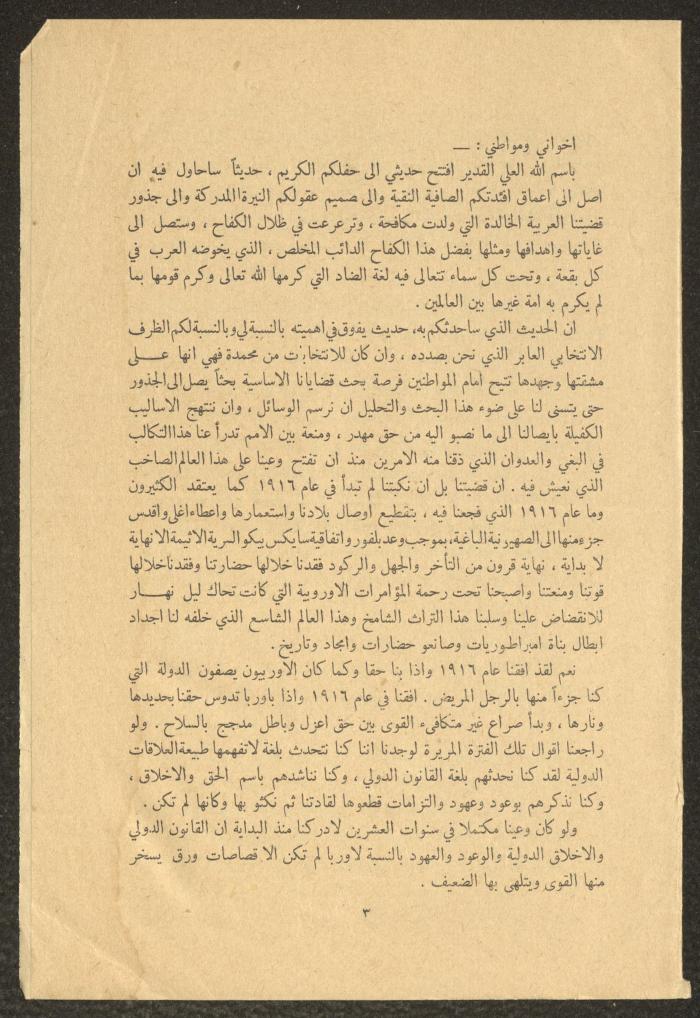 اخواني ومواطني : —
باسم الله العلي القدير افتتح حديثي الى حفلكم الكريم ، حديثاً ساحاول فيه ان
اصل الى اعماق افئدتكم الصافية النقية والى صميم عقولكم النيرة المدركة والى جذور
قضيتنا العربية الخالدة التي ولدت مكافحة ، وترعرعت في ظلال الكفاح ، وستصل الى
غاياتها واهدافها ومثلها بفضل هذا الكفاح الدائب المخلص ، الذي يخوضه العرب في
كل بقعة ، وتحت كل سماء تتعالى فيه لغة الضاد التي كرمها الله تعالى وكرم قومها بما
لم يكرم به امة غيرها بين العالمين .
ان الحديث الذي ساحدثكم به، حديث يفوق في اهميته بالنسبة لي وبالنسبة لكم الظرف
الانتخابي العابر الذي نحن بصدده ، وان كان للانتخابات من محمدة فهي انها عــلى
مشقتها وجهدها تتيح امام المواطنين فرصة بحث قضايانا الاساسية بحثاً يصل الى الجذور
حتى يتسنى لنا على ضوء هذا البحث والتحليل ان نرسم الوسائل ، وان ننتهج الاساليب
الكفيلة بايصالنا الى ما نصبو اليه من حق مهدر ، ومنعة بين الامم تدرأ عنا هذا التكالب
في البغي والعدوان الذي ذقنا منه الامرين منذ ان تفتح وعينا على هذا العالم الصاخب
الذي نعيش فيه . ان قضيتنا بل ان نكبتنا لم تبدأ في عام ١٩١٦ كما يعتقد الكثيرون
وما عام ١٩١٦ الذي فجعنا فيه ، بتقطيع اوصال بلادنا واستعمارها واعطاء اغلى واقدس
جزء منها الى الصهيونية الباغية، بموجب وعد بلفور واتفاقية سايكس بيكو السرية الاثيمة الا نهاية
لا بداية ، نهاية قرون من التأخر والجهل والركود فقدنا خلالها حضارتنا وفقدنا خلالها
قوتنا ومنعتنا واصبحنا تحت رحمة المؤامرات الاوروبية التي كانت تحاك ليل نهــار
للانقضاض علينا وسلبنا هذا التراث الشامخ وهذا العالم الشاسع الذي خلفه لنا اجداد
ابطال بناة امبراطوريات وصانعو حضارات وامجاد وتاريخ .
نعم لقد افقنا عام ١٩١٦ واذا بنا حقا وكما كان الاوربيون يصفون الدولة التي
كنا جزءاً منها بالرجل المريض . افقنا في عام ١٩١٦ واذا باوربا تدوس حقنا بحديدها
ونارها ، وبدأ صراع غير متكافىء القوى بين حق اعزل وباطل مدجج بالسلاح . ولو
راجعنا اقوال تلك الفترة المريرة لوجدنا اننا كنا نتحدث بلغة لا تفهمها طبيعة العلاقات
الدولية لقد كنا نحدثهم بلغة القانون الدولي ، وكنا نناشدهم باسم الحق والاخلاق ،
وكنا نذكرهم بوعود وعهود والتزامات قطعوها لقادتنا ثم نكثو بها وكانها لم تكن .
ولو كان وعينا مكتملا في سنوات العشرين لادركنا منذ البداية ان القانون الدولي
والاخلاق الدولية والوعود والعهود بالنسبة لاوربا لم تكن الا قصاصات ورق يسخر
منها القوى ويتلهى بها الضعيف .
٣